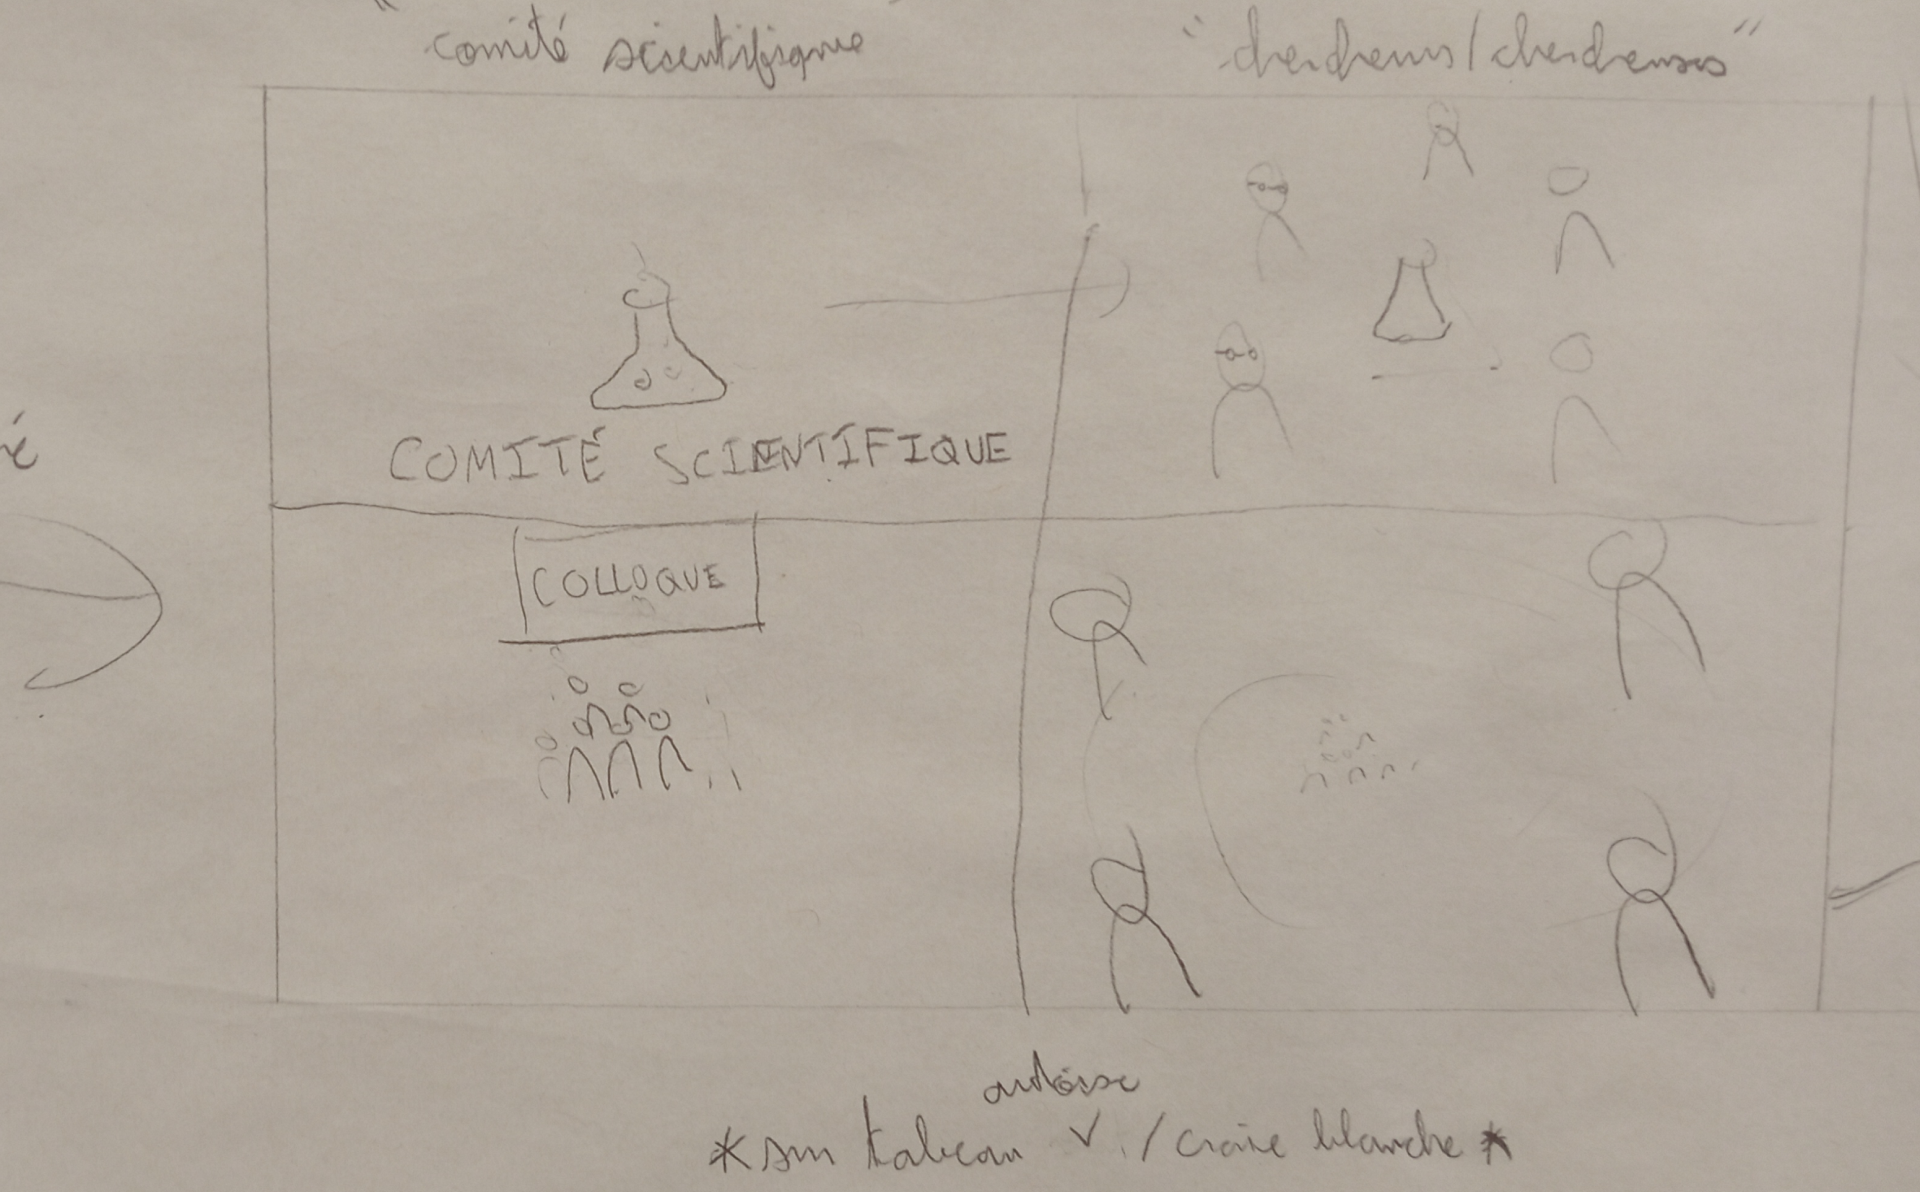 "comité scientifique"
"chercheurs/chercheuses"
COMITÉ SCIENTIFIQUE
COLLOQUE
ardoise
*sur tableau V./craie blanche*